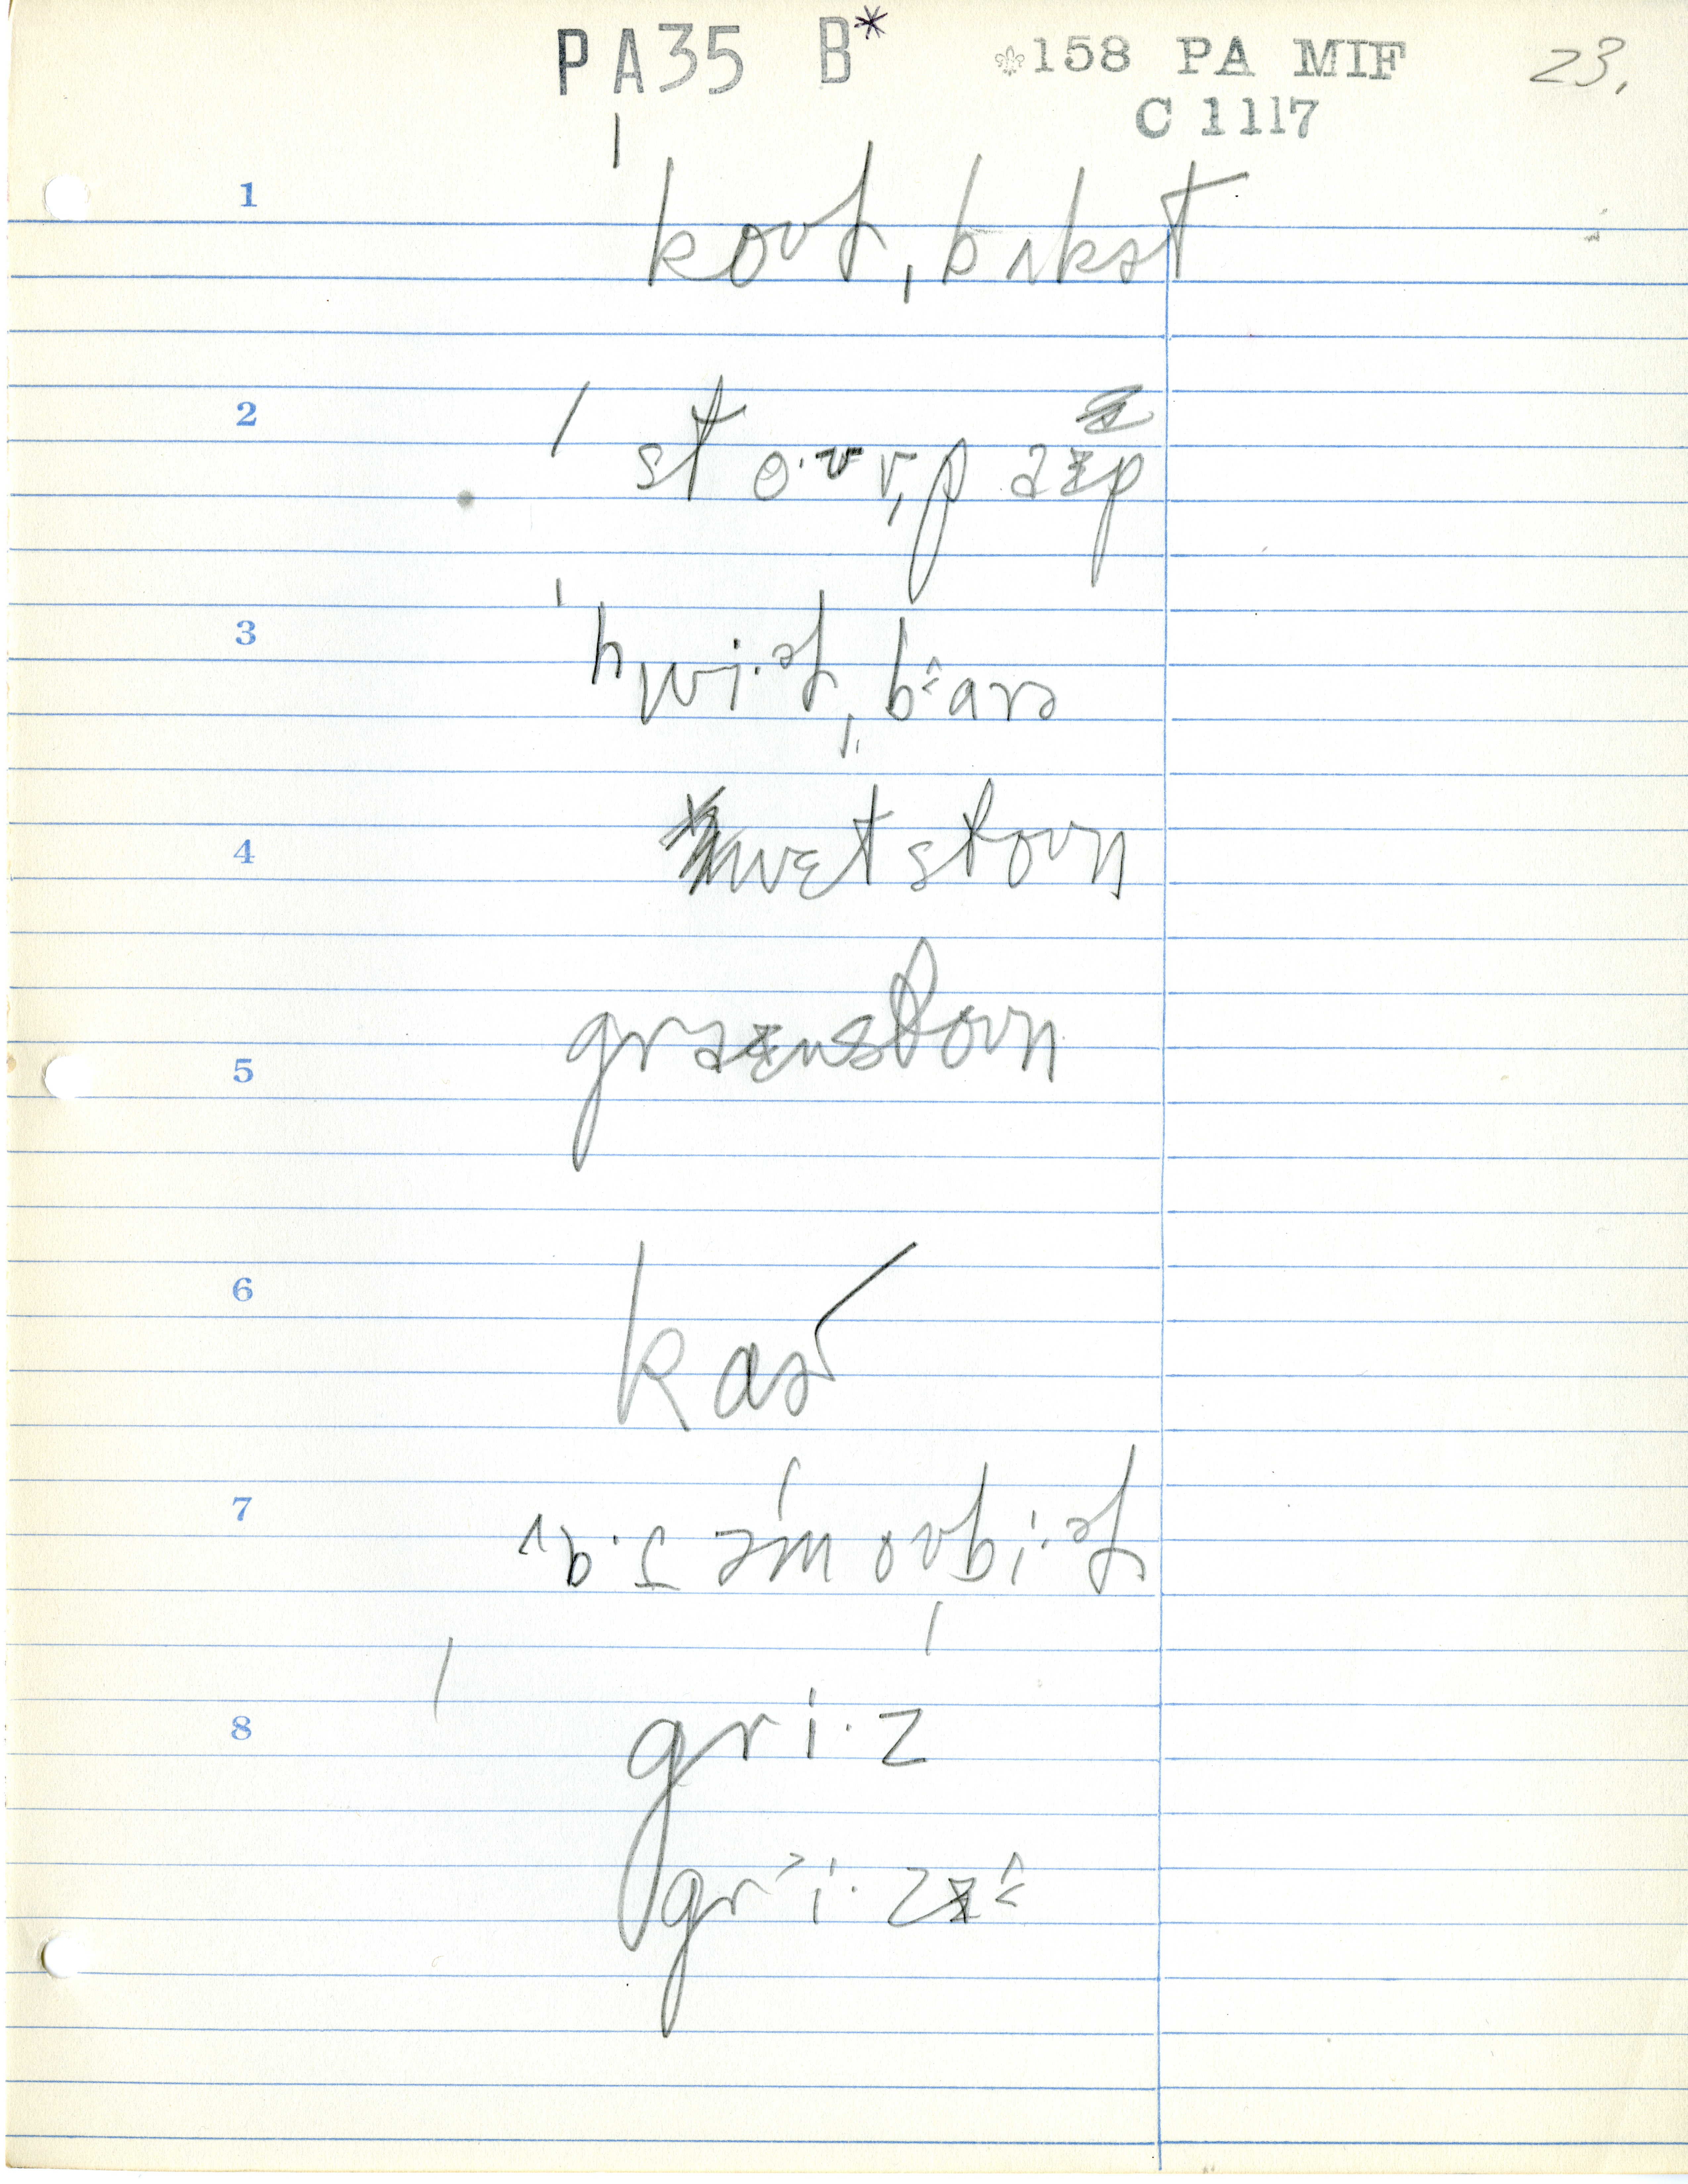 PA35 B* ⚜158 PA MIF 23.
C 1117
1 ˈkoʊl,bʌkət
2 ˈstoˑʊv,pɑɪp
3 ˈhwiˑəl,b^ɑrə
4 wɛtstoʊn
5 grɑɪnstoʊn
6 kɑɚ
7 ʌbˑɪləmoʊbiˑəl
8 ˈgriˑz
griˑzɨ